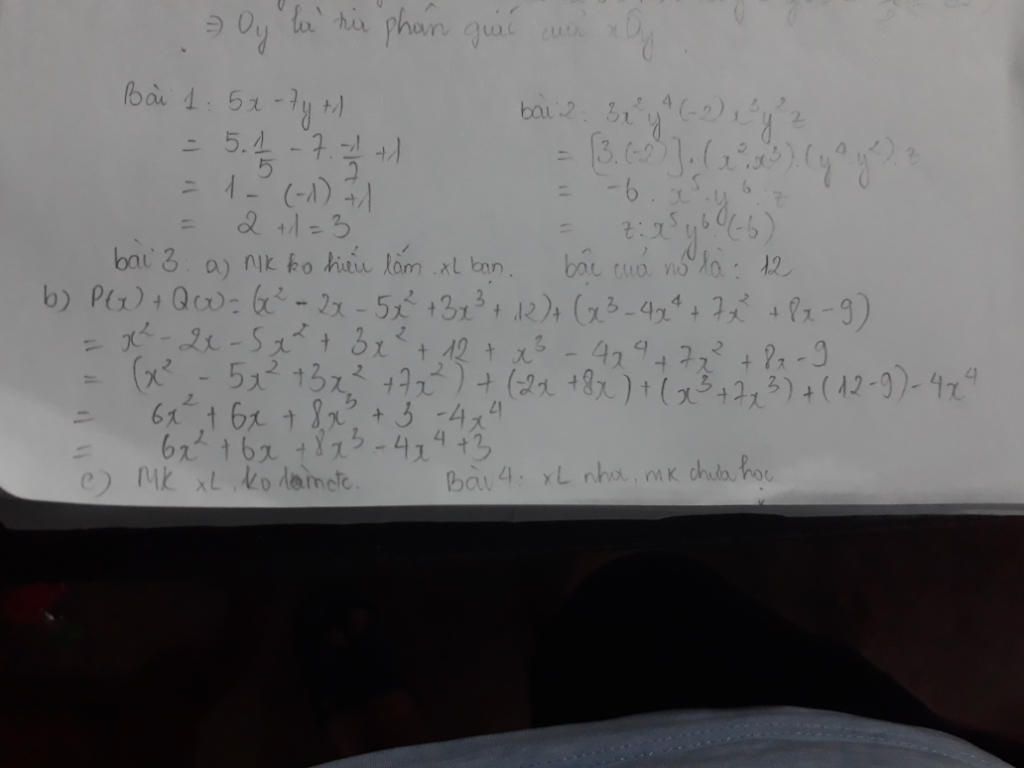 ⇒ Oy là tia phân giác của xOy
Bài 1: 5x - 7y + 1
= 5.1/5 - 7.-1/7 + 1
= 1 - (-1) + 1
= 2 + 1 = 3
bài 2: 3x²y⁴(-2)x³y²z
= [3.(-2)].(x².x³).(y⁴y²).z
= -6.x⁵.y⁶.z
= z:x⁵y⁶(-6)
bậc cuả nó là: 12
bài 3: a) MK ko hiểu lắm. xL bạn.
b) P(x) + Q(x) = (x² - 2x - 5x² + 3x³ + 12) + (x³ - 4x⁴ + 7x² + 8x - 9)
= x² - 2x - 5x² + 3x² + 12 + x³ - 4x⁴ + 7x² + 8x - 9
= (x² - 5x² + 3x² + 7x²) + (-2x + 8x) + (x³ + 7x³) + (12 - 9) - 4x⁴
= 6x² + 6x + 8x³ + 3 - 4x⁴
= 6x² + 6x + 8x³ - 4x⁴ + 3
c) MK xL, ko làm đc.
Bài 4: xL nha, mk chưa học